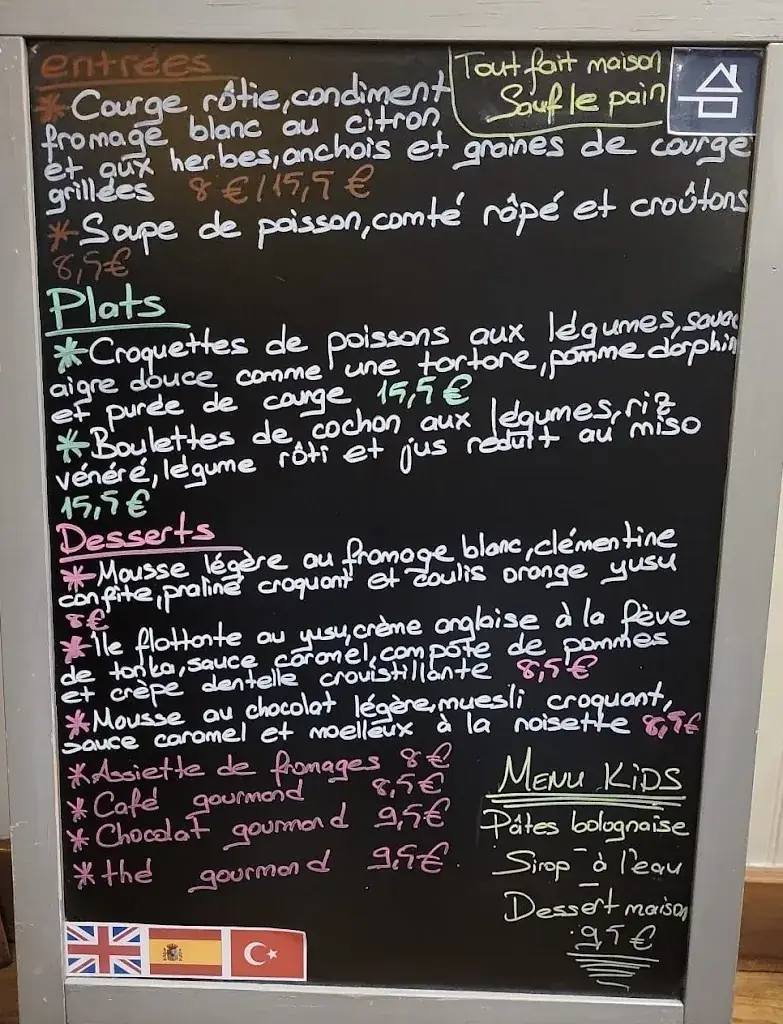 entrées
Tout fait maison
Sauf le pain
* Courge rôtie, condiment
fromage blanc au citron
et aux herbes, anchois et graines de courge
grillées 8 € / 15,5 €
* Soupe de poisson, comté râpé et croûtons
8,5€
Plats
* Croquettes de poissons aux légumes, sauce
aigre douce comme une tartare, pomme dauphin
et purée de courge 15,5 €
* Boulettes de cochon aux légumes, riz
vénéré, légume rôti et jus réduit au miso
15,5 €
Desserts
* Mousse légère au fromage blanc, clémentine
confite, praliné croquant et coulis orange yusu
8€
* Ile flottante au yusu, crème anglaise à la fève
de tonka, sauce caramel, compote de pommes
et crèpe dentelle crouistillante 8,5 €
* Mousse au chocolat légère, muesli croquant,
sauce caramel et moelleux à la noisette 8,5€
* Assiette de fromages 8 €
* Café gourmand 8,5€
* Chocolat gourmand 9,5€
* thé gourmand 9,5€
MENU KiDS
Pâtes bolognaise
–
Sirop à l'eau
–
Dessert maison
9,5 €